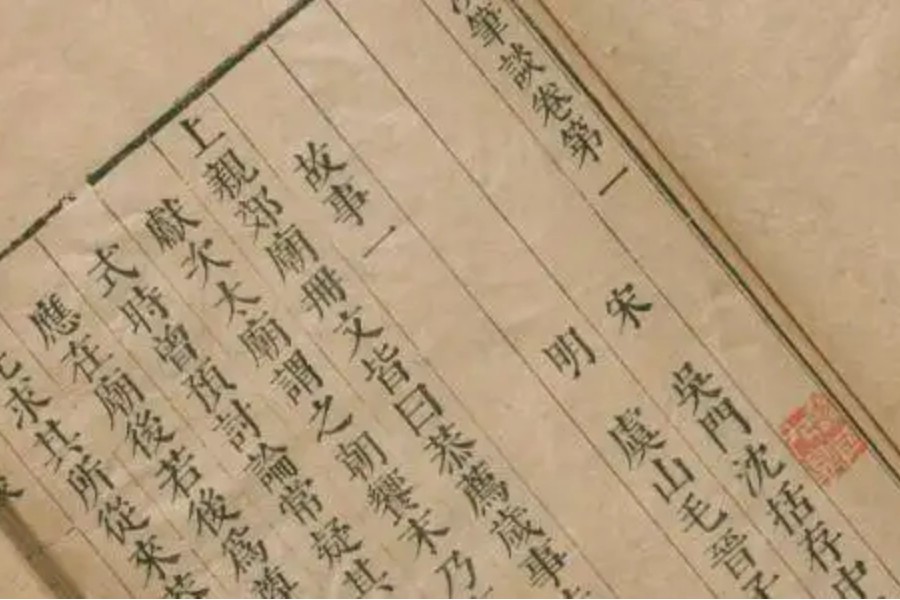 筆談卷第一
宋 吳門沈括存中
明 虞山毛晉子
故事一
上親郊廟冊文皆曰恭薦歲事
獻次太廟謂之朝饗末乃
式時曾預討論常疑其
應在廟後若後爲尊
先求其所從來蓋